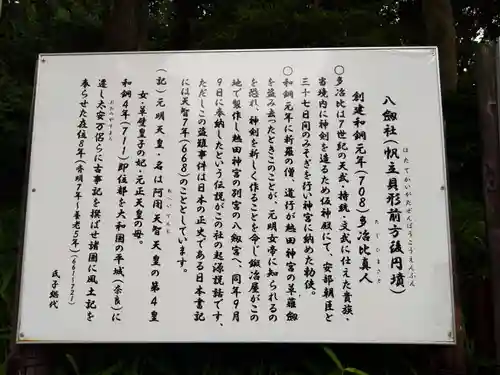 八劔社(帆立貝形前方後円墳)
ほたてがいがたぜんぽうこうえんふん
創建和銅元年(708)多治比真人
たじひまさと
○多治比は7世紀の天武・持統・文武に仕えた貴族・
当境内に神剣を造るため仮神殿にて、安部朝臣と
三十七日間のみそぎを行い神宮に納めた勅使。
○和銅元年に新羅の僧、道行が熱田神宮の草薙劔
を盗み去ったときこのことが、元明女帝に知られるの
を恐れ、神剣を新しく作ることを命じ鍛冶屋がこの
地で製作し熱田神宮の別宮の八劔宮へ、同年9月
9日に奉納したという伝説がこの社の起源説話です、
ただしこの盗難事件は日本の正史である日本書記
には天智7年(668)のこととしています。
(記)元明天皇・名は阿閇天智天皇の第4皇
あへてんじ
女・草壁皇子の妃・元正天皇の母。
和銅4年(711)即位都を大和国の平城(奈良)に
遷し太安万侶らに古事記を撰ばせ諸国に風土記を
おおのやすまろ
奉らせた在位8年(斉明7年~養老5年)(661~721)
氏子総代